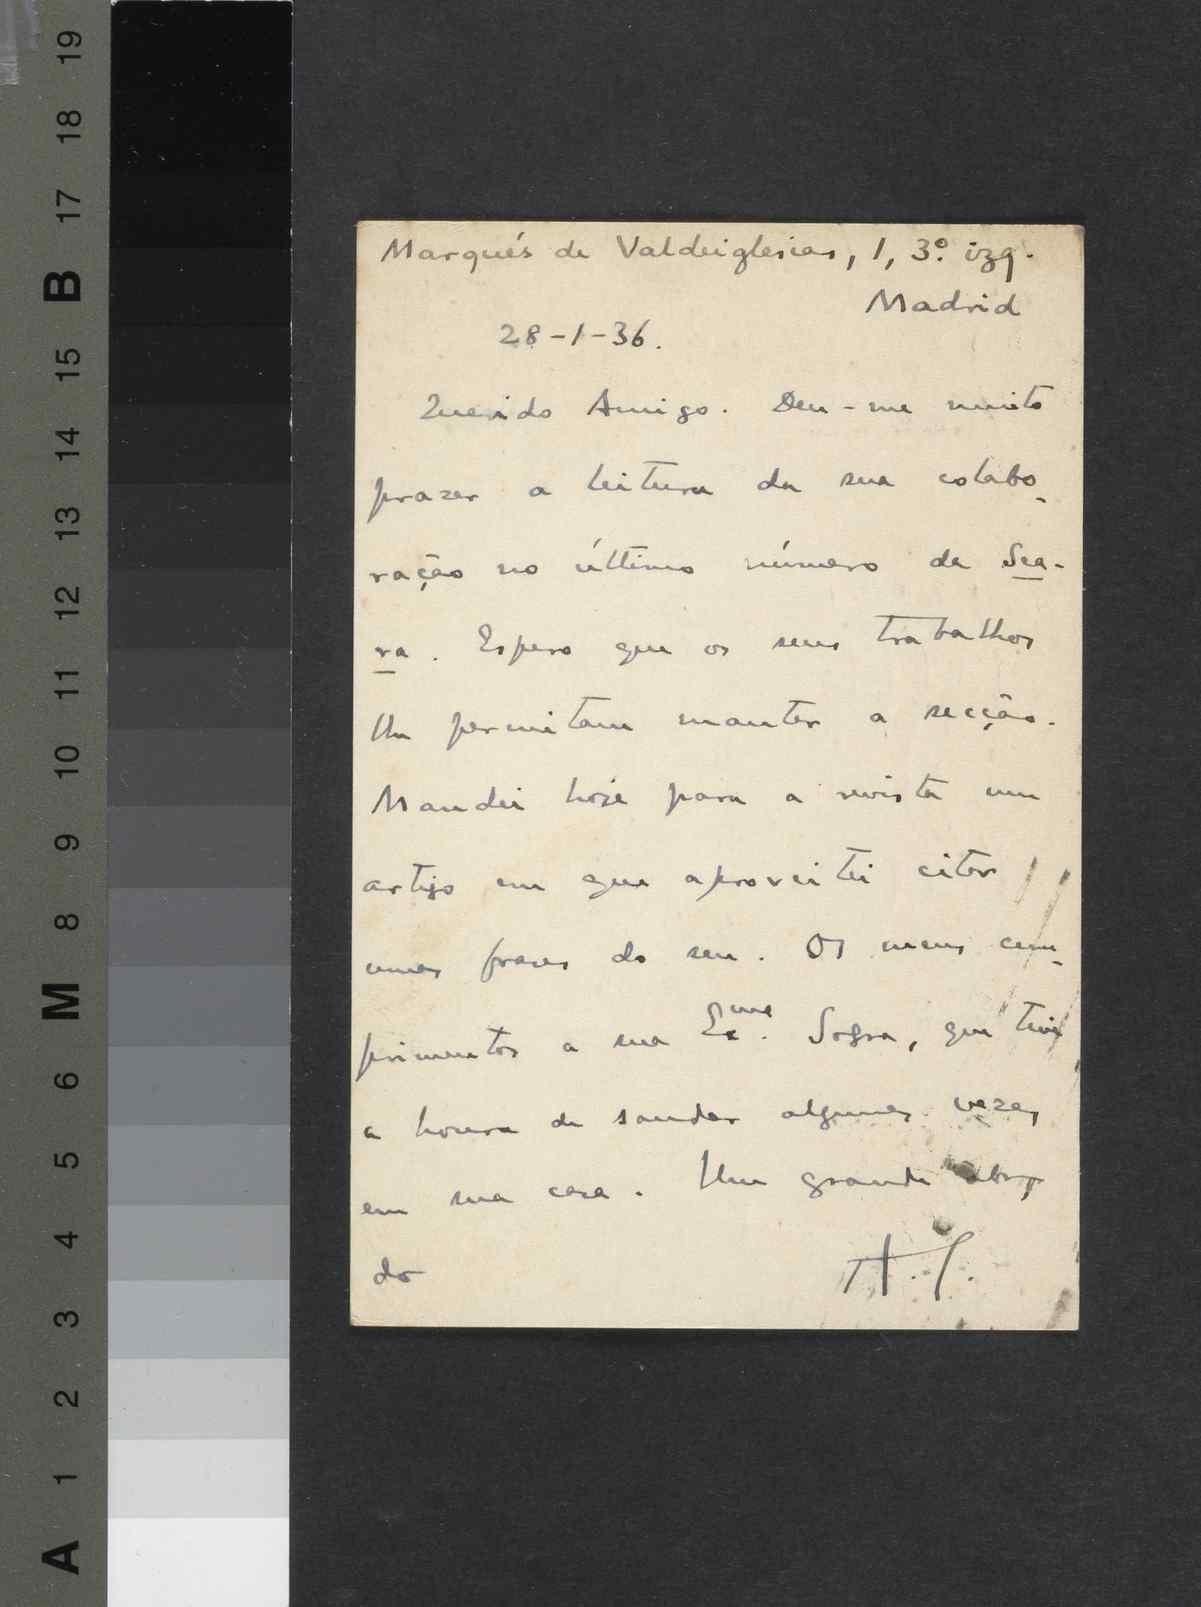 Marqués de Valdeiglesias, 1, 3º. izq.
Madrid
28-1-36.
Querido Amigo. Deu-me muito
prazer a leitura da sua colabo-
ração no último número da Sea-
ra. Espero que os seus trabalhos
lhe permitam manter a secção.
Mandei hoje para a revista um
artigo em que aproveitei citar
umas frases do seu. Os meus cum-
primentos a sua Exma. Sogra, que tive
a honra de saudar algumas vezes
em sua casa. Um grande abrç
do
A. S.
19
18
17
B
15
14
13
12
11
10
9
8
M
6
5
4
3
2
1
A